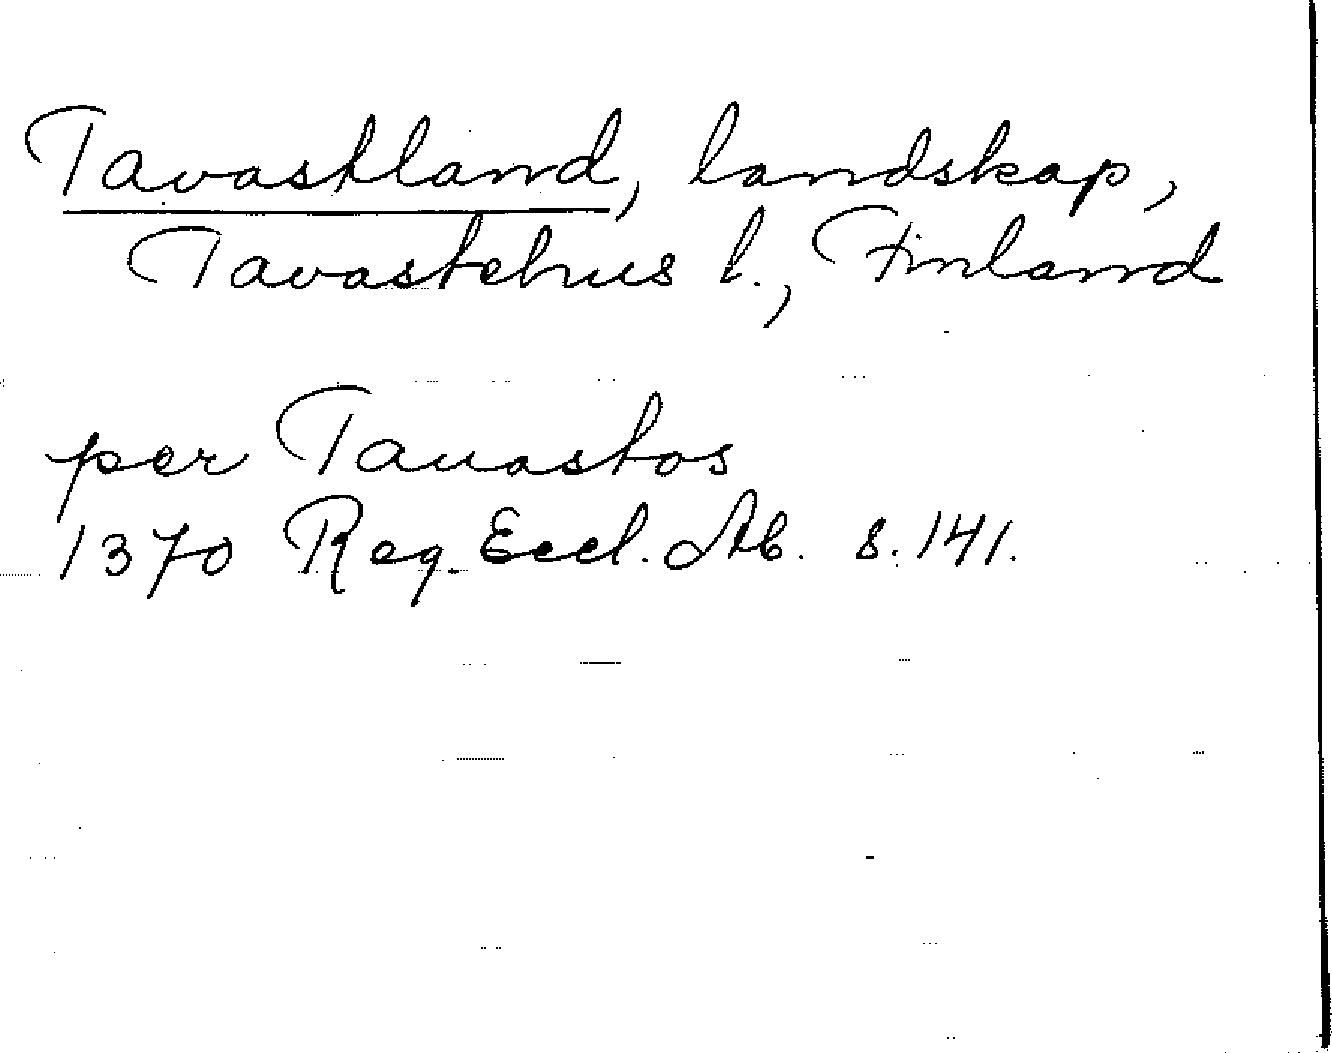 Tavastland, landskap,
Tavastehus l., Finland
per Tauastos
1370 Reg. Eccl. Ab. s. 141.